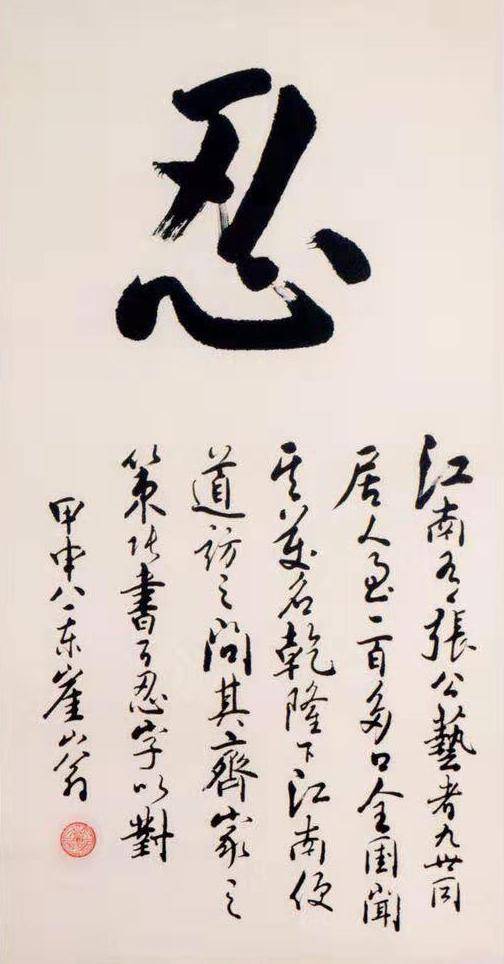 忍
江南有張公藝者九世同
居人二百多口全国聞
其名乾隆下江南便
道訪之問其齊家之
策張書百忍字以對
甲申八東崖翁